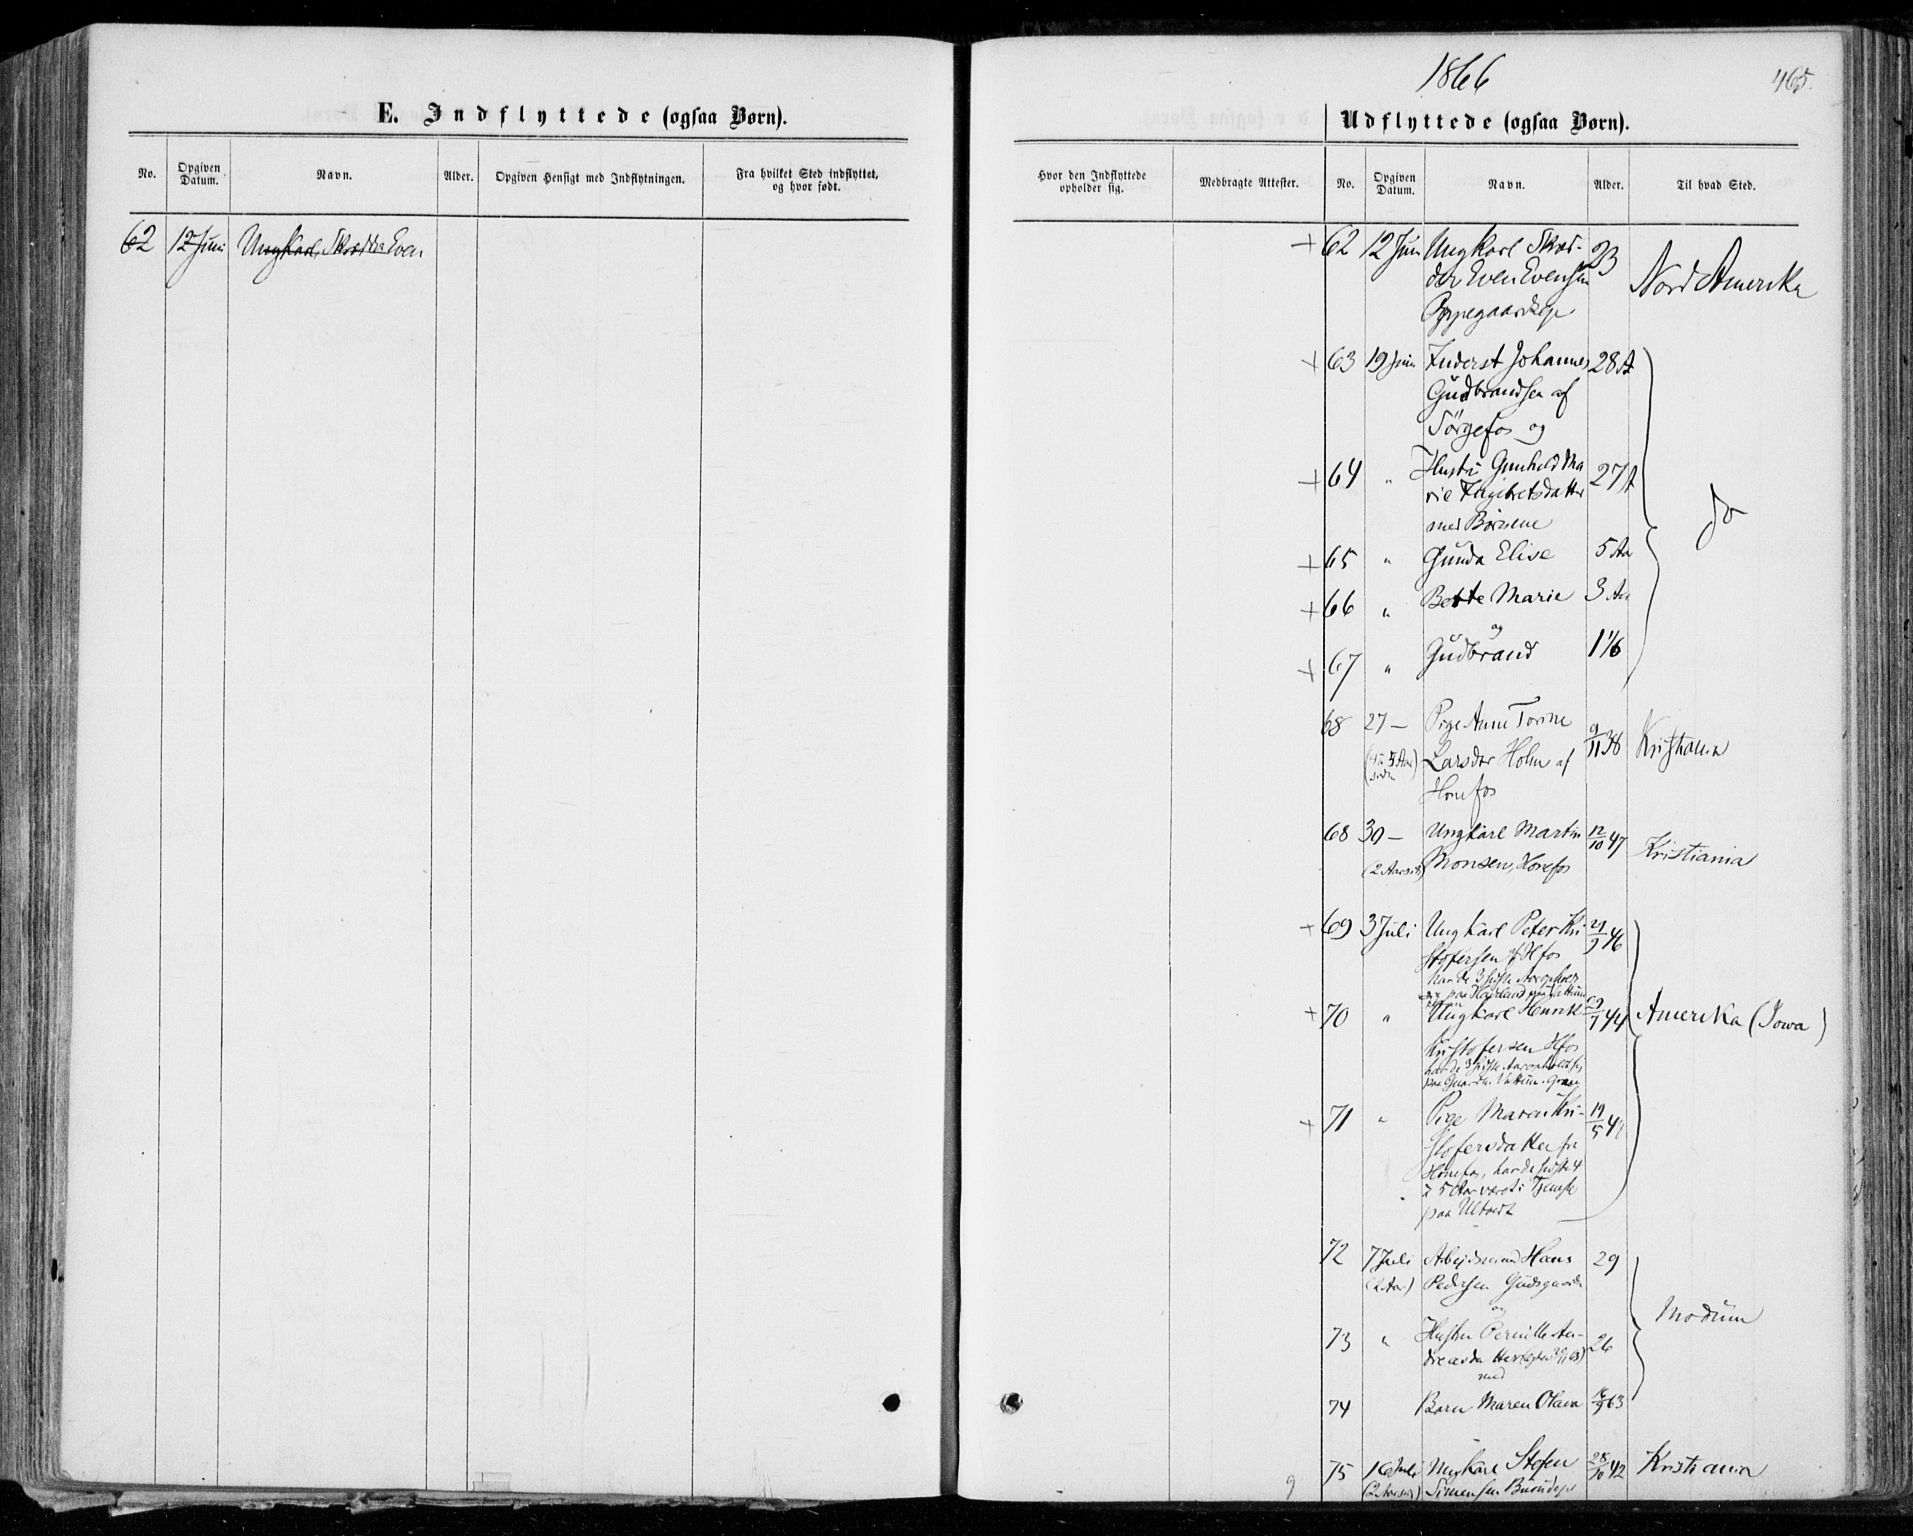 1866
465.
E. Indflyttede (ogsaa Børn).
Udflyttede (ogsaa Børn).
No.
Opgiven Datum.
Navn.
Alder.
Opgiven Hensigt med Indflytningen.
Fra hvilket Sted indflyttet, og hvor født.
Hvor den Indflyttede opholder sig.
Medbragte Attester.
No.
Opgiven Datum.
Navn.
Alder.
Til hvad Sted.
62 12 Juni Ungkarl, Skrædder Even
+ 62 12 Juni Ungkarl Skræd- 23
der Even Evensen Nord Amerika
Oppegaardseje
+ 63 19 Juni Inderst Johannes 28 A
Gudbrandsen af
Sørgefos og
+ 64 " Hustru Gunhild Ma 27 A
rie Engebretsdatter do
med Børnene
+ 65 " Gunda Elise 5 Aar
+ 66 " Bertte Marie 3 Aar
og
+ 67 " Gudbrand 1 1/6
68 27 — Pige Anne Torine 9/11 38 Kristiania
(4 a 5 Aar siden) Larsdtr Holm af
Hønefos
68 30 — Ungkarl Martin 12/10 47 Kristiania
(2 Aar sid.) Monsen, Hønefos
+ 69 3 Juli Ungkarl Peter Kri 21/9 46
stofersen af Hfos
har de 3 sidste Aar opholdt
sig paa
+ 70 " Ungkarl Henrik 29/1 44 Amerika (Iowa)
Kristofersen Hfos
har de 3 sidste Aar opholdt sig
paa
+ 71 " Pige Maren Kri- 19/5
stofersdatter fra
Hønefos, har de sidste 4
a 5 Aar været i Tjeneste
paa Ultvedt
72 7 Juli Arbejdsmand Hans 29
(2 Aar) Pedersen Gudsgaarden
og Modum
73 " Hustru Pernille An- 26
dreasdatter
med
74 Barn Maren Olava 16/9 63
75 16 Juli Ungkarl Stefen 28/10 42 Kristiania
(2 Aar sid.) Simensen